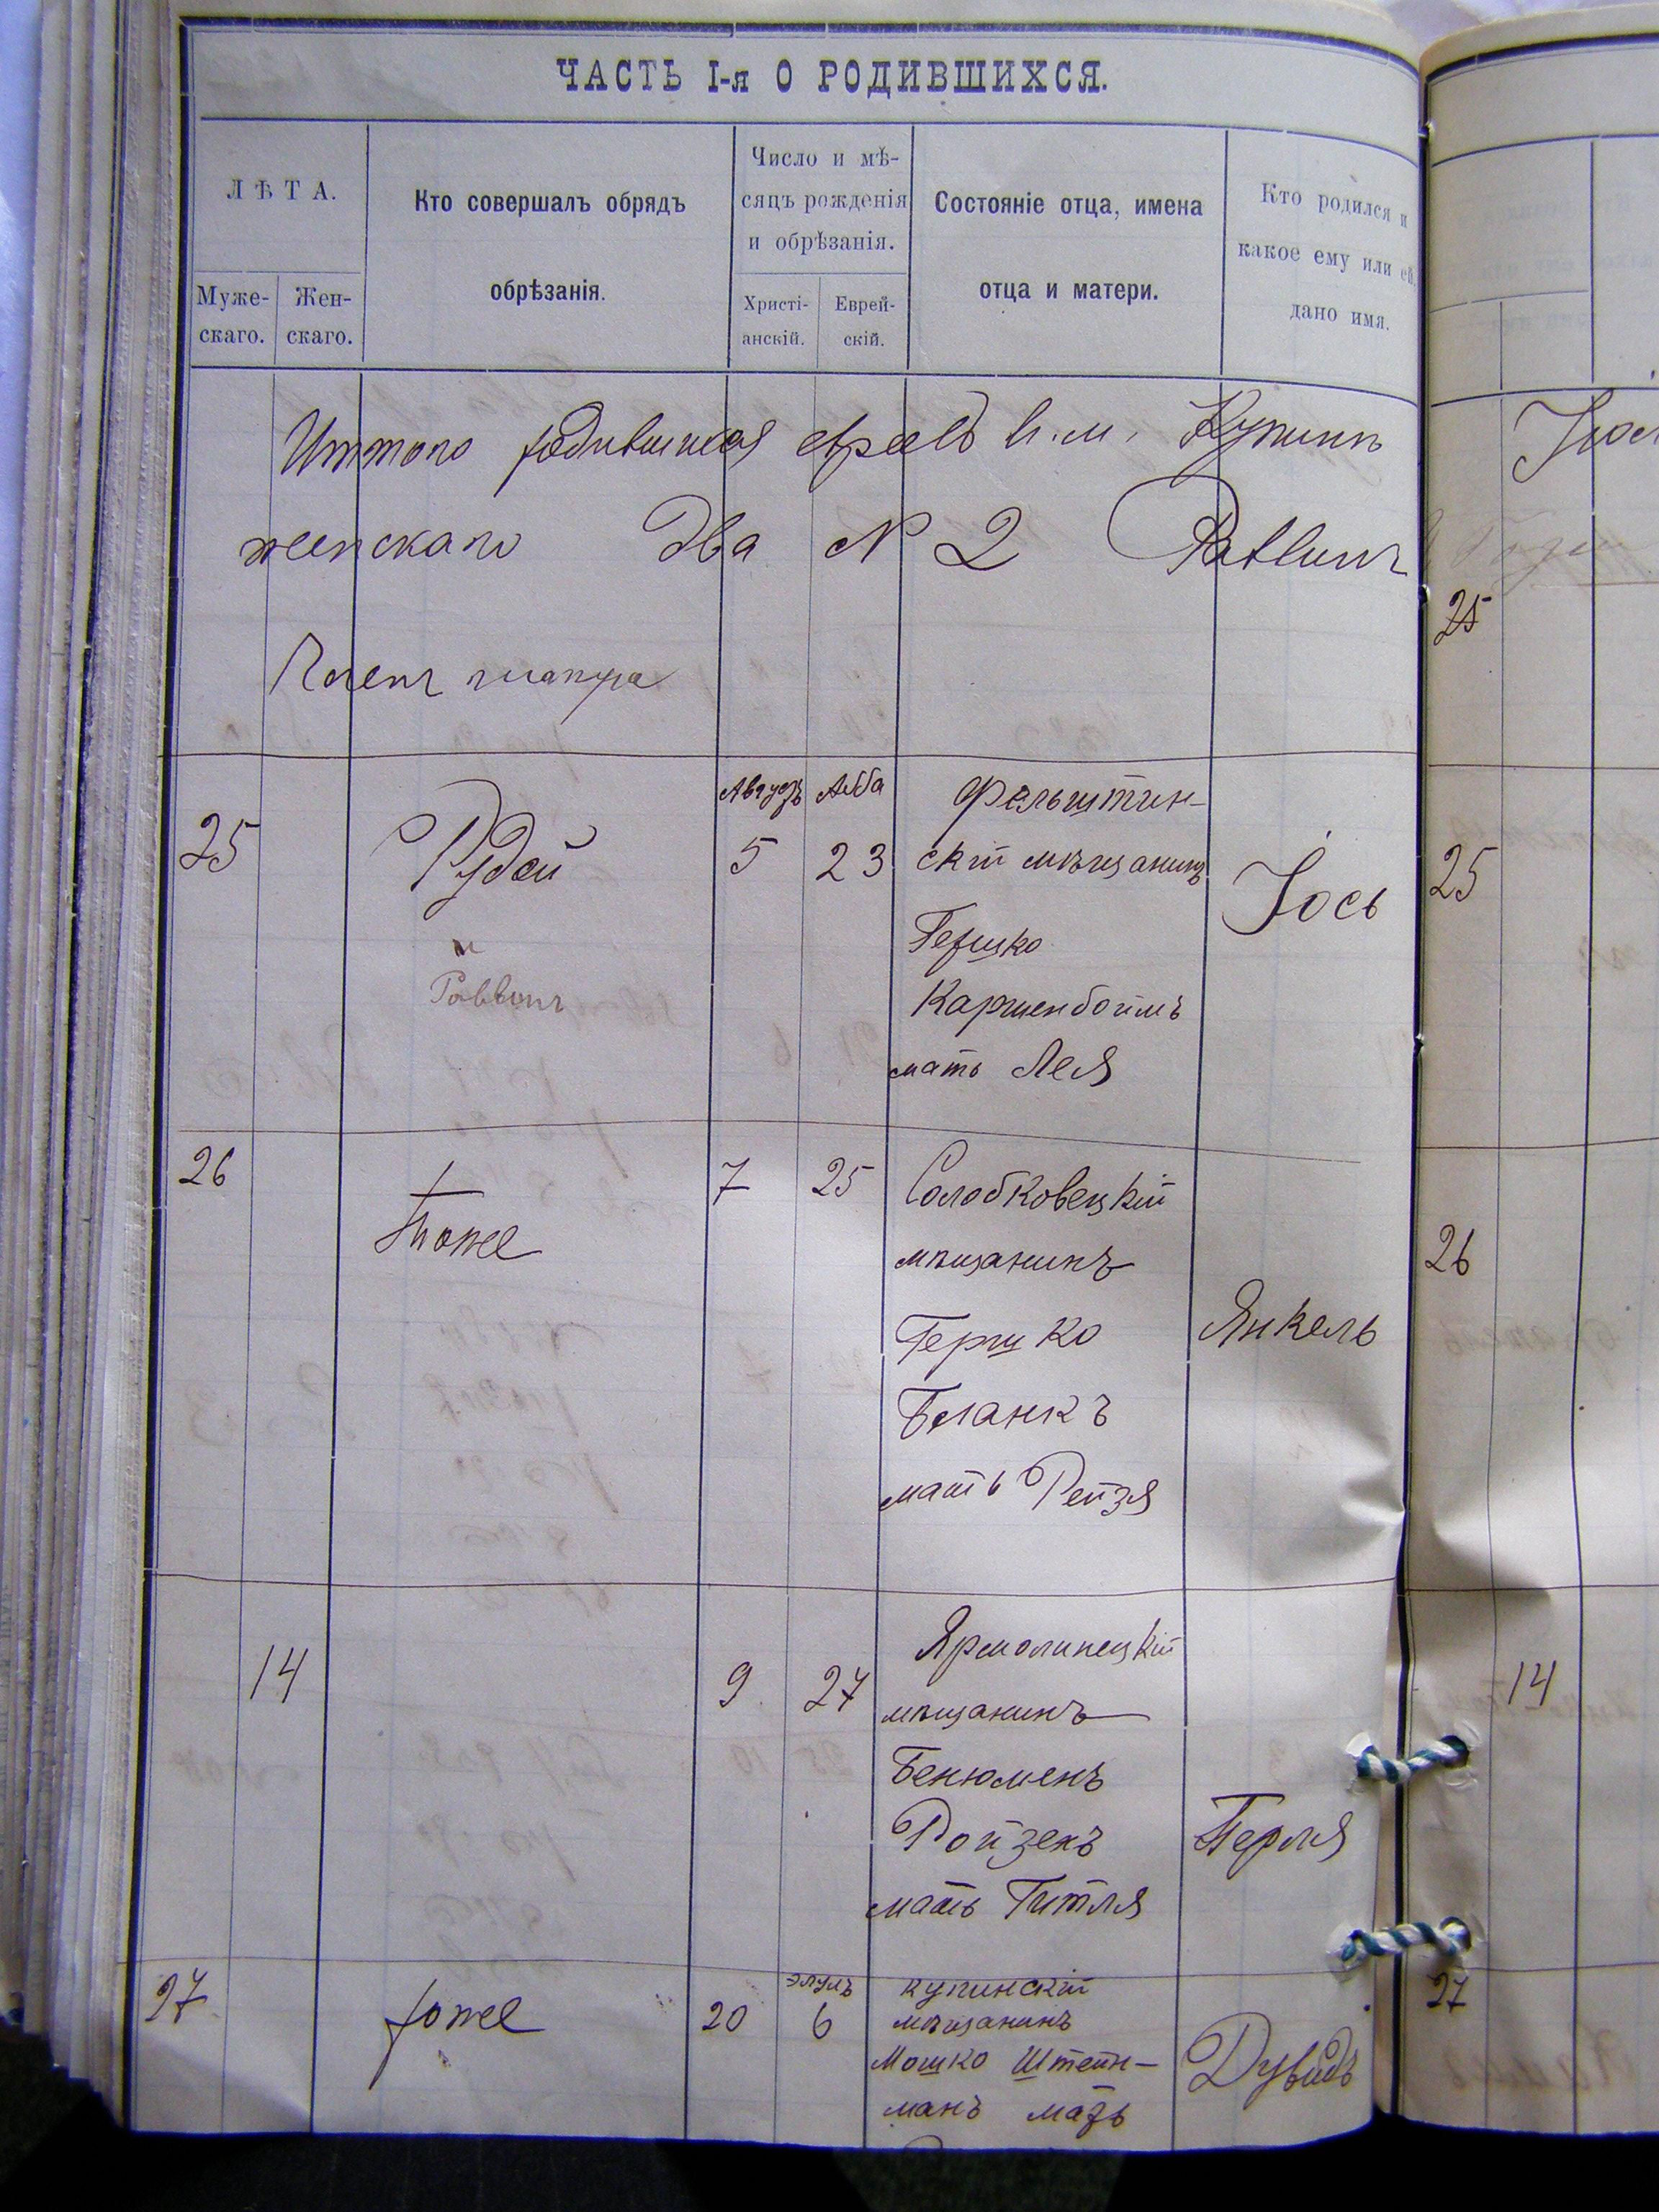 ЧАСТЬ I-я О РОДИВШИХСЯ.
ЛѢТА.
Муже-
скаго.
Жен-
скаго.
Кто совершалъ обрядъ
обрѣзанія.
Число и мѣ-
сяцъ рожденія
и обрѣзанія.
Христі-
анскій.
Еврей-
скій.
Состояніе отца, имена
отца и матери.
Кто родился и
какое ему или ей
дано имя.
Иттого родившихся евреевъ в. м. Купинъ
женскаго Два № 2 Раввинъ
25
25
Рудой
и
Раввинъ
Августъ
5
23
Фельштин-
скій мѣщанинъ
Гершко
Каршенбоймъ
мать Лея
Іось
25
26
тоже
7
25
Солобковецкій
мѣщанинъ
Гершко
Бланкъ
мать Рейзя
Янкель
26
14
9
27
Ярмолинецкій
мѣщанинъ
Бенюменъ
Ройзенъ
мать Гитля
Перля
14
27
тоже
20
Элулъ
6
купинскій
мѣщанинъ
Мошко Штейн-
манъ мать
Дувидъ
27